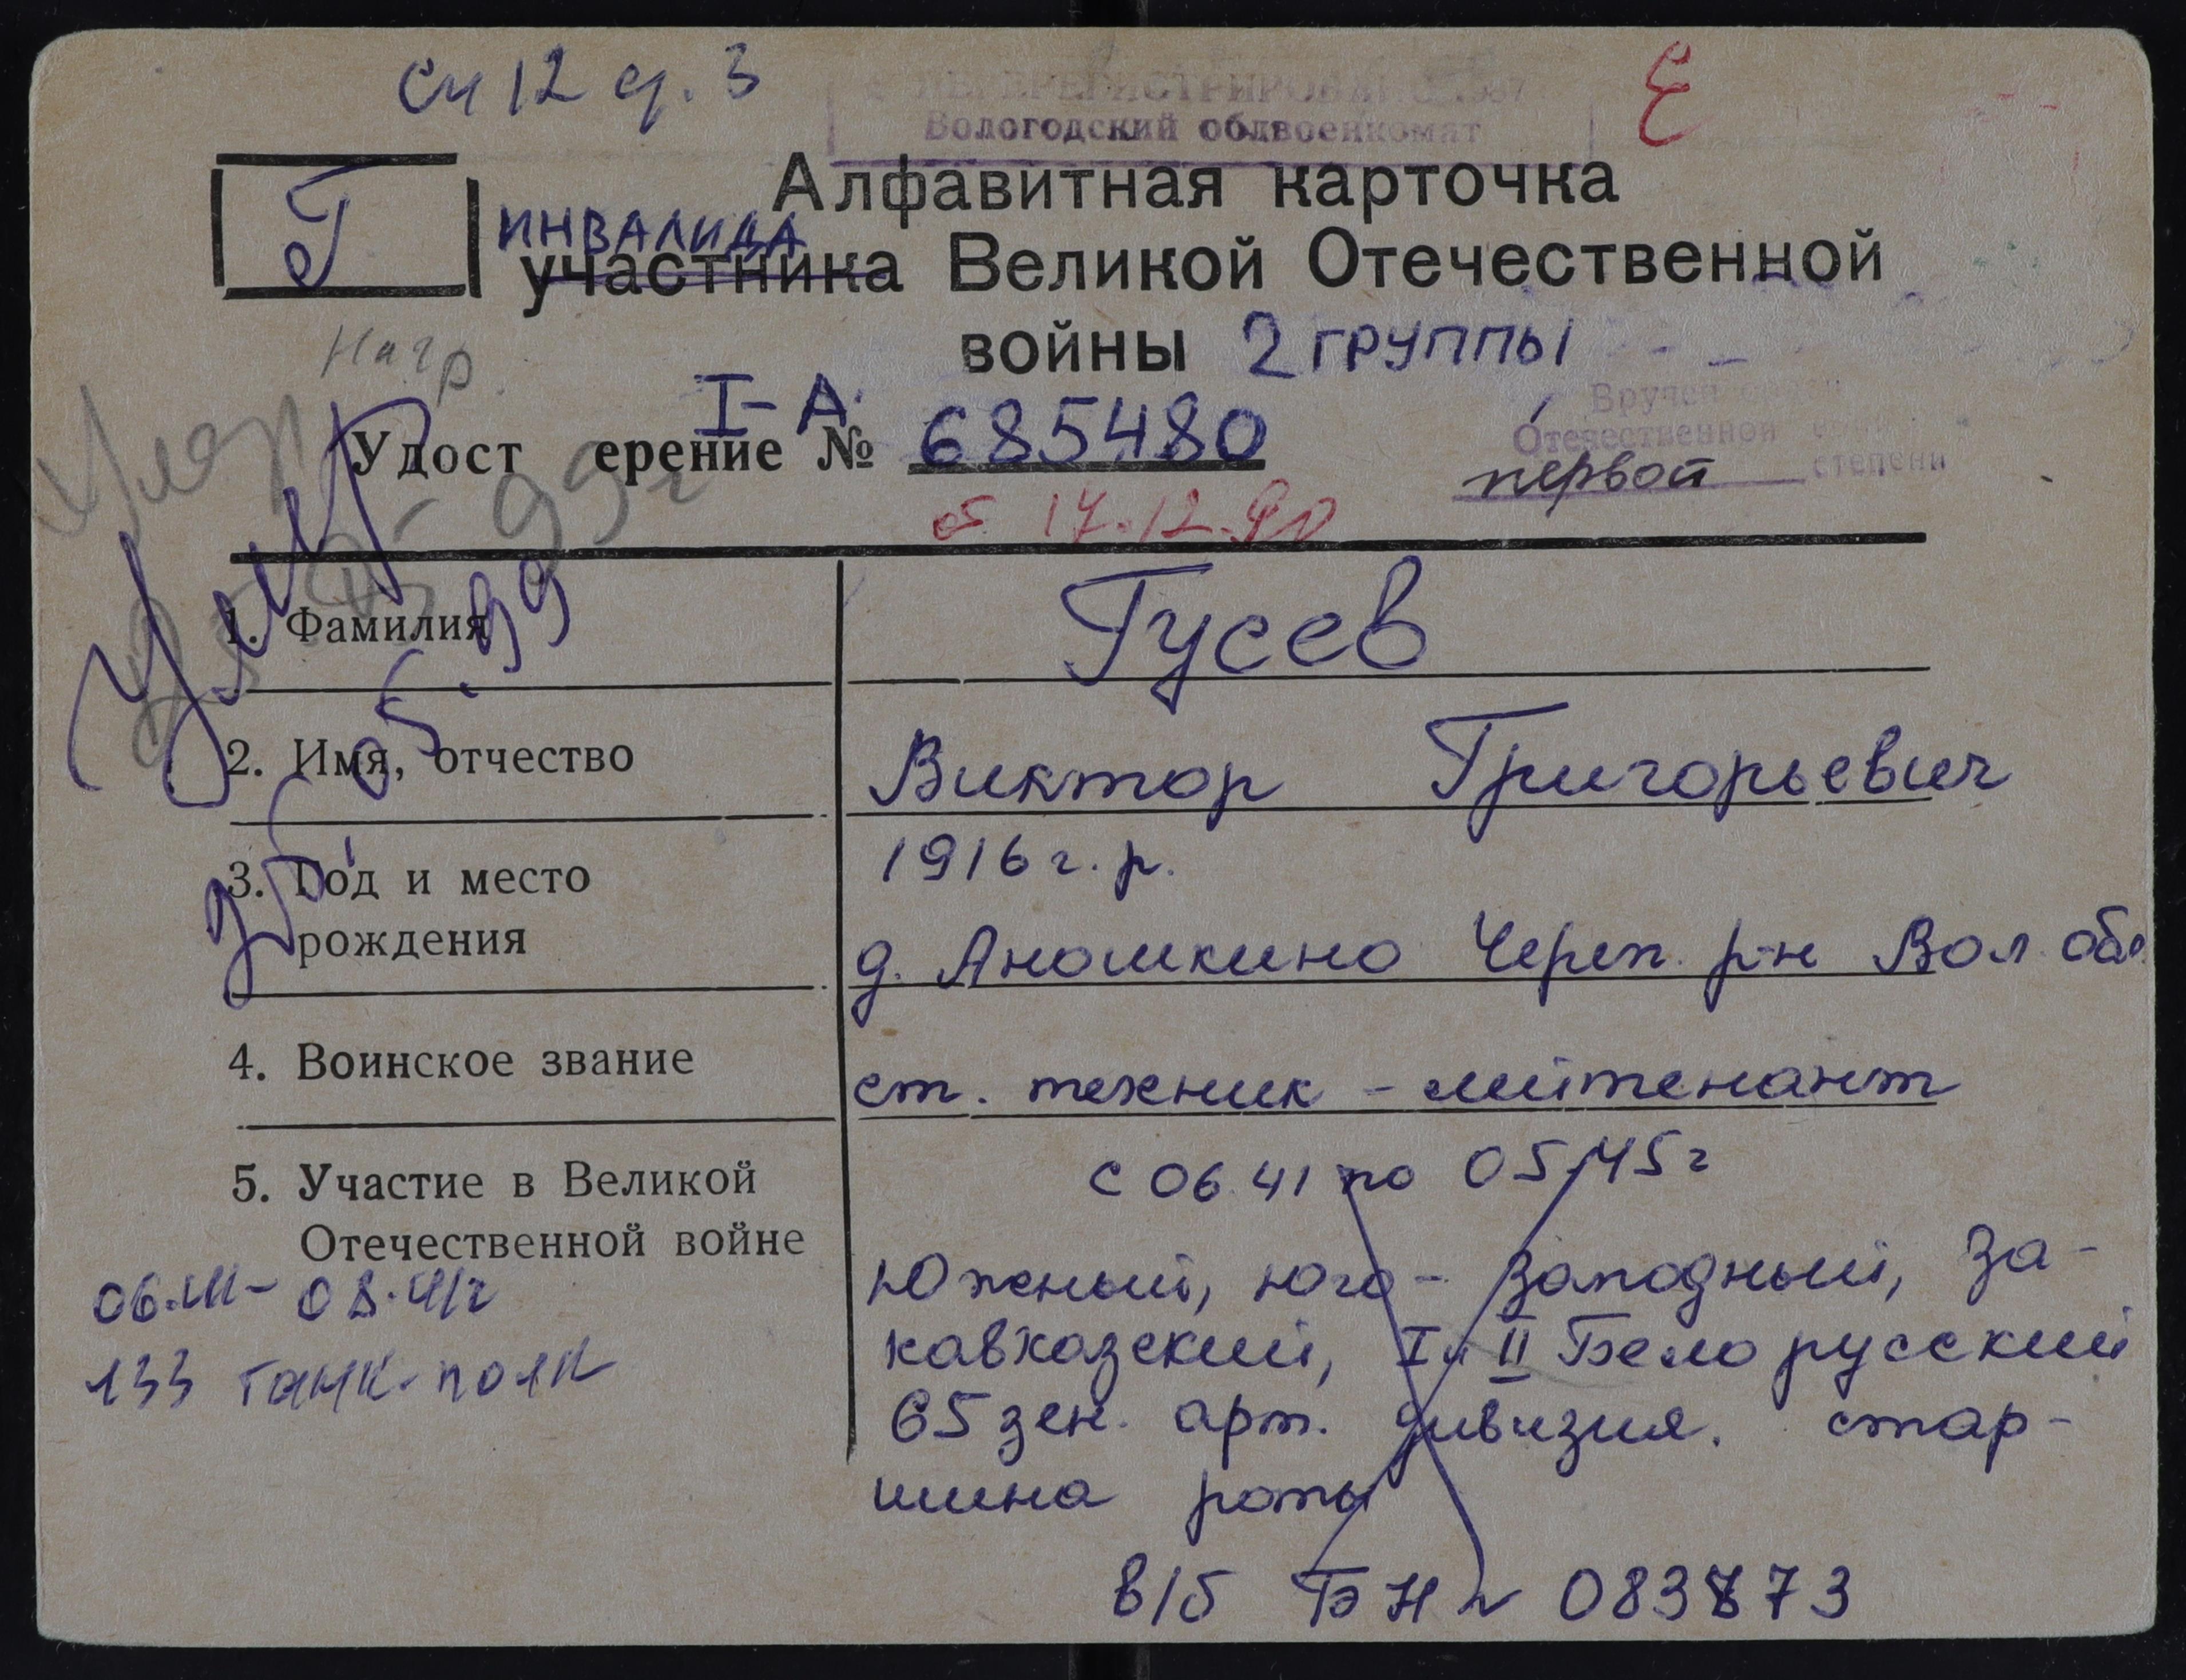 сч 12 д. 3
ПЕРЕРЕГИСТРИРОВАН
Вологодский облвоенкомат
Е
Г
Алфавитная карточка
ИНВАЛИДА
участника Великой Отечественной
войны 2 ГРУППЫ
нагр.
I-А.
Удост ерение № 685480
Вручен
Отечественной
первой степени
от 17.12.90
Умер
05.99
1. Фамилия Гусев
2. Имя, отчество Виктор Григорьевич
3. Год и место рождения 1916 г. р.
д. Аношкино Череп. р-н Вол. обл.
4. Воинское звание ст. техник - лейтенант
5. Участие в Великой Отечественной войне с 06.41 по 05.45 г
Южный, юго-Западный, За-
кавказский, I и II Белорусский
65 зен. арт. дивизия. стар-
шина роты
06.41- 08.41г
133 танк. полк
в/б ГЭ Н № 083873